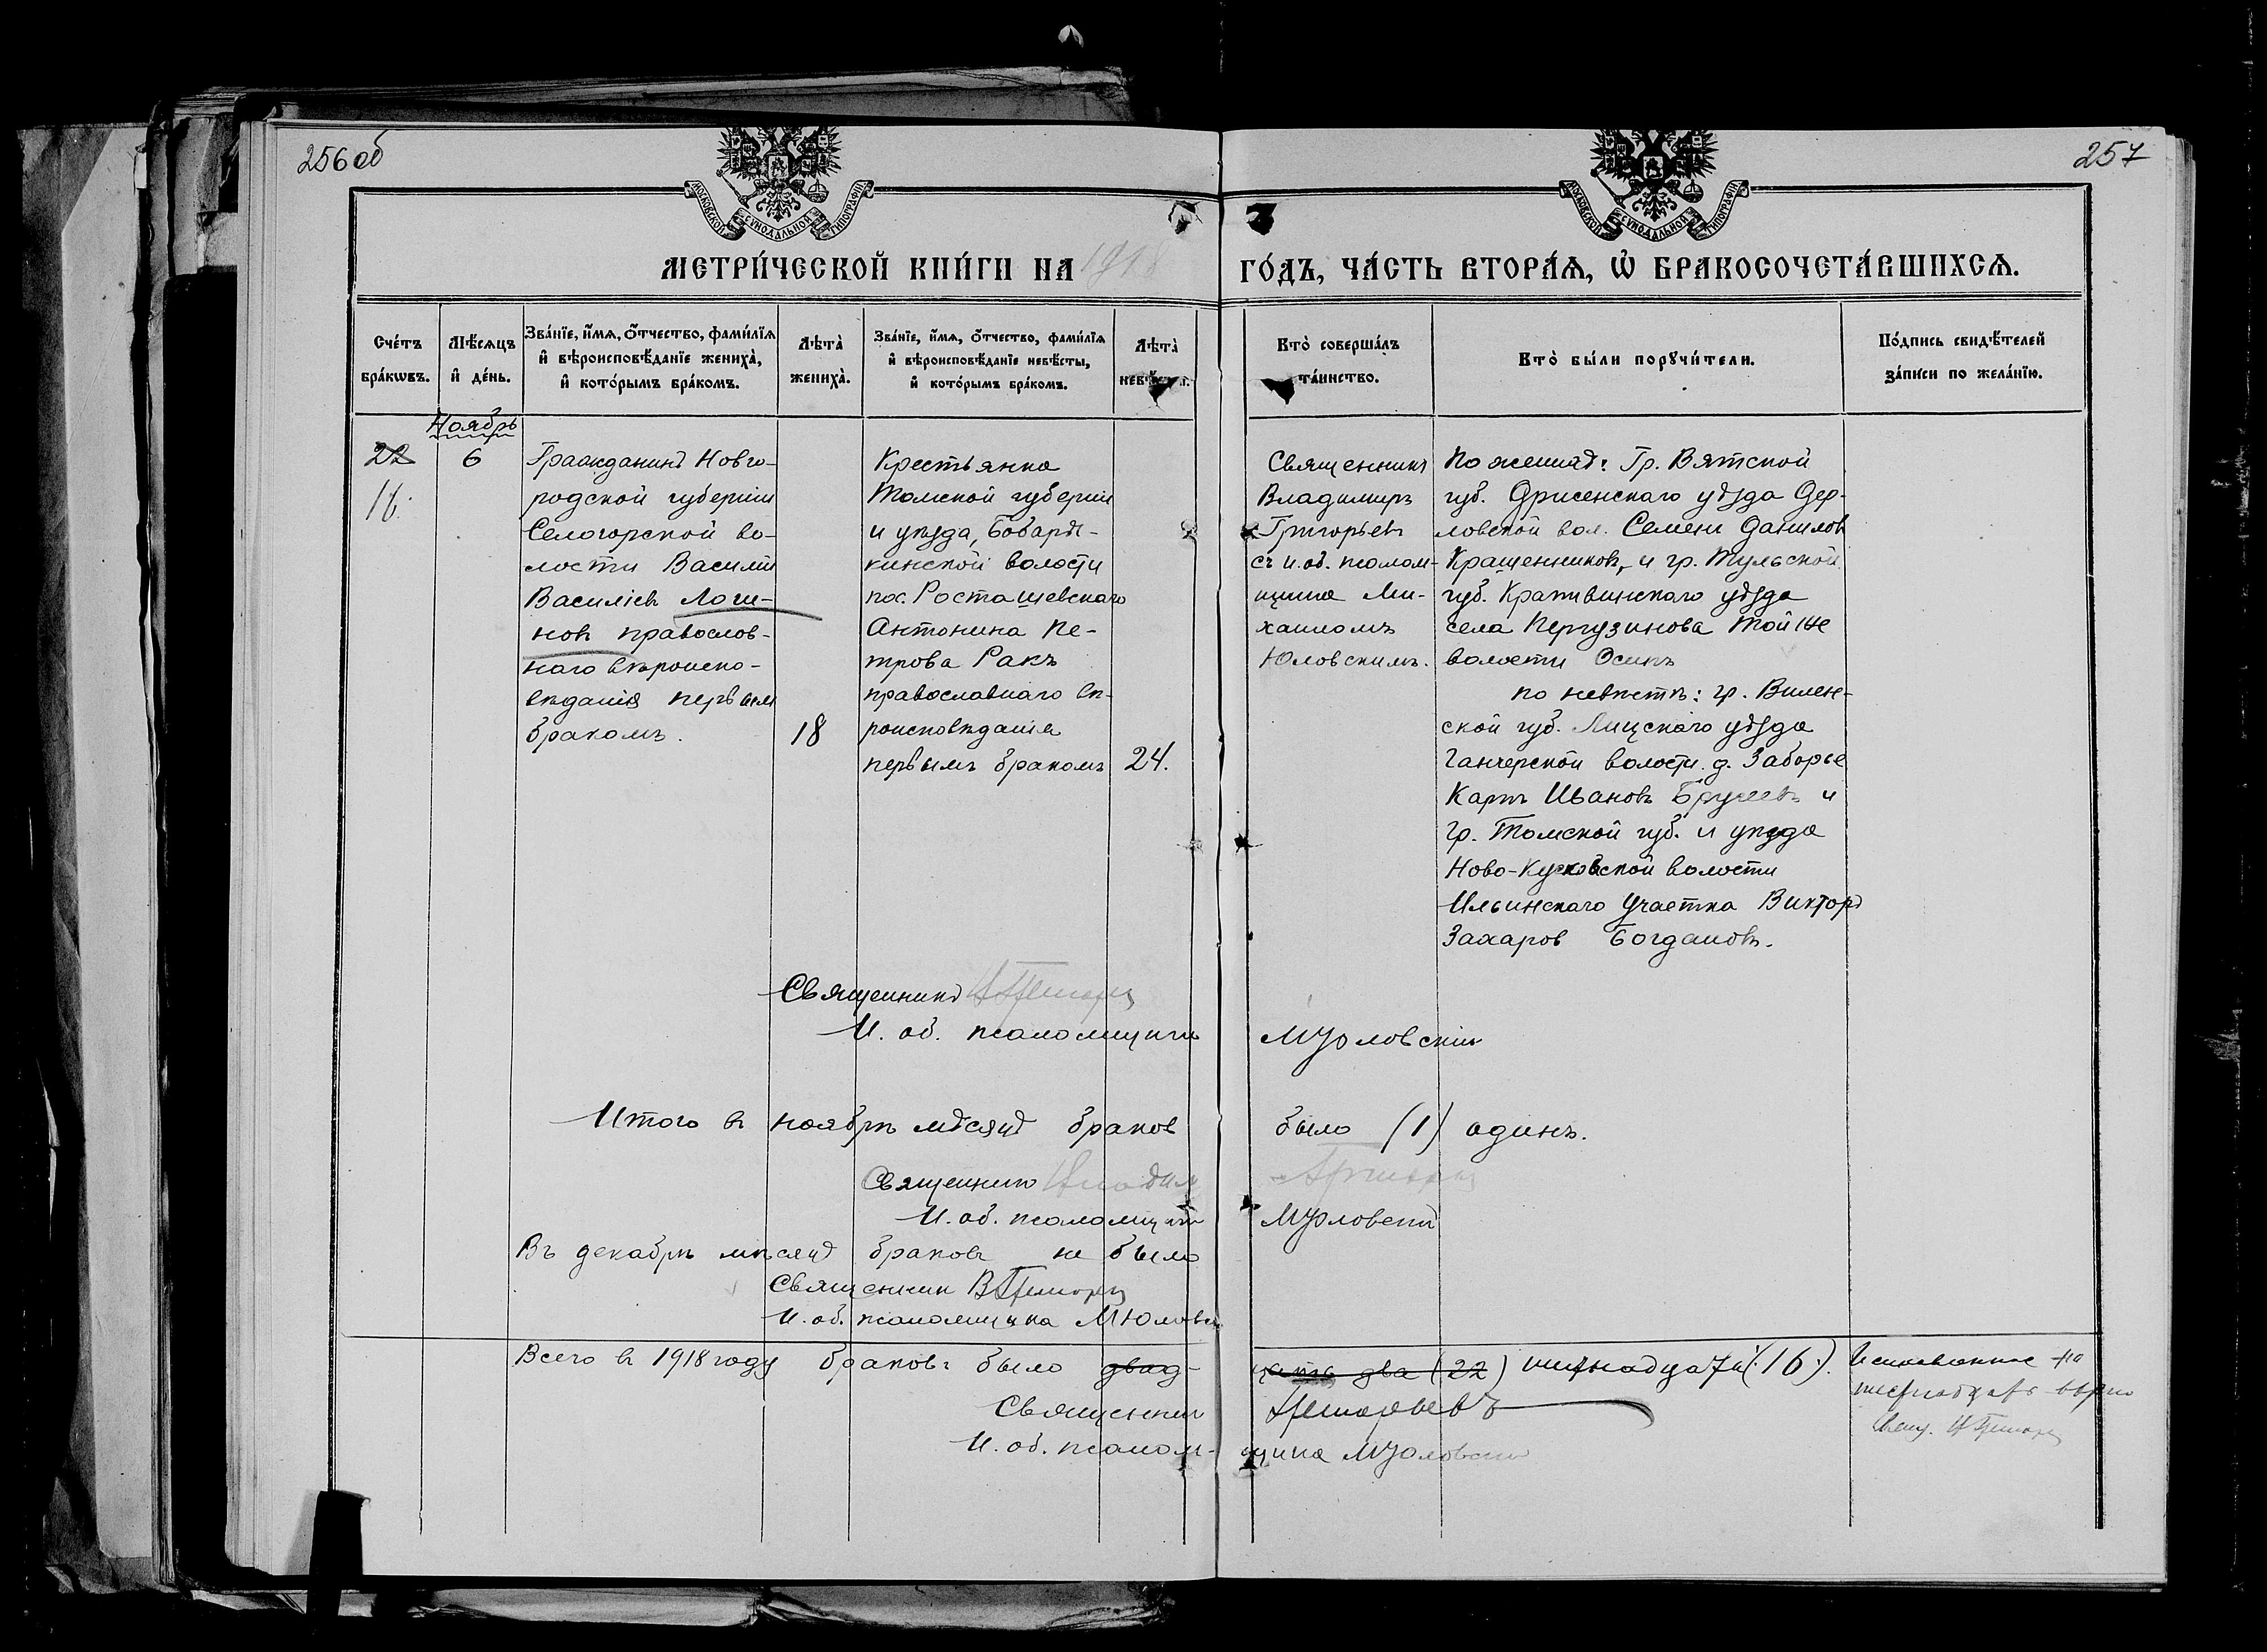 256об
257
МОСКОВСКОЙ СѴНОДАЛЬНОЙ ТИПОГРАФІИ
МОСКОВСКОЙ СѴНОДАЛЬНОЙ ТИПОГРАФІИ
МЕТРИ́ЧЕСКОЙ КНИ́ГИ НА 1918 ГО́ДЪ, ЧА́СТЬ ВТОРА́Я, Ѡ БРАКОСОЧЕТА́ВШИХСЯ.
Сче́тъ бра́кѡвъ.
Мѣ́сяцъ и де́нь.
Зва́нїе, и́мя, о́тчество, фами́лїя
и вѣроисповѣ́данїе жениха̀,
и кото́рымъ бра́комъ.
Лѣта̀ жениха̀.
Зва́нїе, и́мя, о́тчество, фами́лїя
и вѣроисповѣ́данїе невѣ́сты,
и кото́рымъ бра́комъ.
Лѣта̀
Кто̀ соверша́лъ та́инство.
Кто̀ бы́ли порꙋчи́тели.
По́дпись свидѣ́телей
за́писи по жела́нїю.
Ноябрь
22
16.
6
Гражданинъ Новго-
родской губерніи
Селогорской во-
лости Василій
Василіевъ Логи-
новъ православ-
наго вѣроиспо-
вѣданія первымъ
бракомъ.
18
Крестьянка
Томской губерніи
и уѣзда, Бобары-
кинской волости
пос. Росташевскаго
Антонина Пе-
трова Ракъ
православнаго вѣ-
роисповѣданія
первымъ бракомъ
24.
Священникъ
Владимиръ
Григорьевъ
съ и.об. псалом-
щика Ми-
хаиломъ
Юловскимъ.
По женихѣ: Гр. Вятской
губ. Дрисенскаго уѣзда Дер-
ловской вол. Семенъ Даниловъ
Крашенниковъ, и гр. Тульской
губ. Крапивинскаго уѣзда
села Пергузинова той же
волости Осипъ
по невѣстѣ: гр. Вилен-
ской губ. Лидскаго уѣзда
Ганчерской волости д. Заборье
Карпъ Ивановъ и
гр. Томской губ. и уѣзда
Ново-Кусковской волости
Ильинскаго участка Викторъ
Захаров Богдановъ.
Священникъ
И. об. псаломщика МЮловскій
Итого въ ноябрѣ мѣсяцѣ браков было (1) одинъ.
Священникъ Владим
И. об. псаломщика МЮловскій
Въ декабрѣ мѣсяцѣ браковъ не было
Священник ВГригорьев
И. об. псаломщика МЮловск
Всего въ 1918 году браковъ было двад- цать два (22) шестнадцать (16).
Священникъ Григорьевъ
И. об. псалом- щика МЮловскій